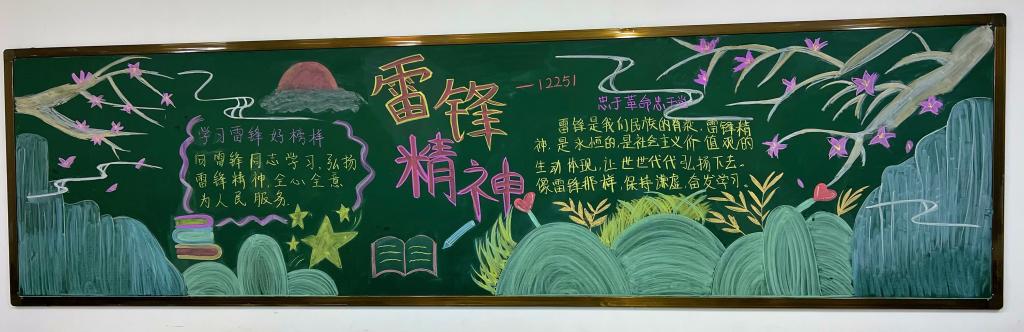 雷锋
精神
—12251
学习雷锋好榜样
向雷锋同志学习,弘扬
雷锋精神,全心全意
为人民服务.
忠于革命忠于党
雷锋是我们民族的脊梁,雷锋精
神,是永恒的,是社会主义价值观的
生动体现,让世世代代弘扬下去。
像雷锋那样,保持谦虚,奋发学习。